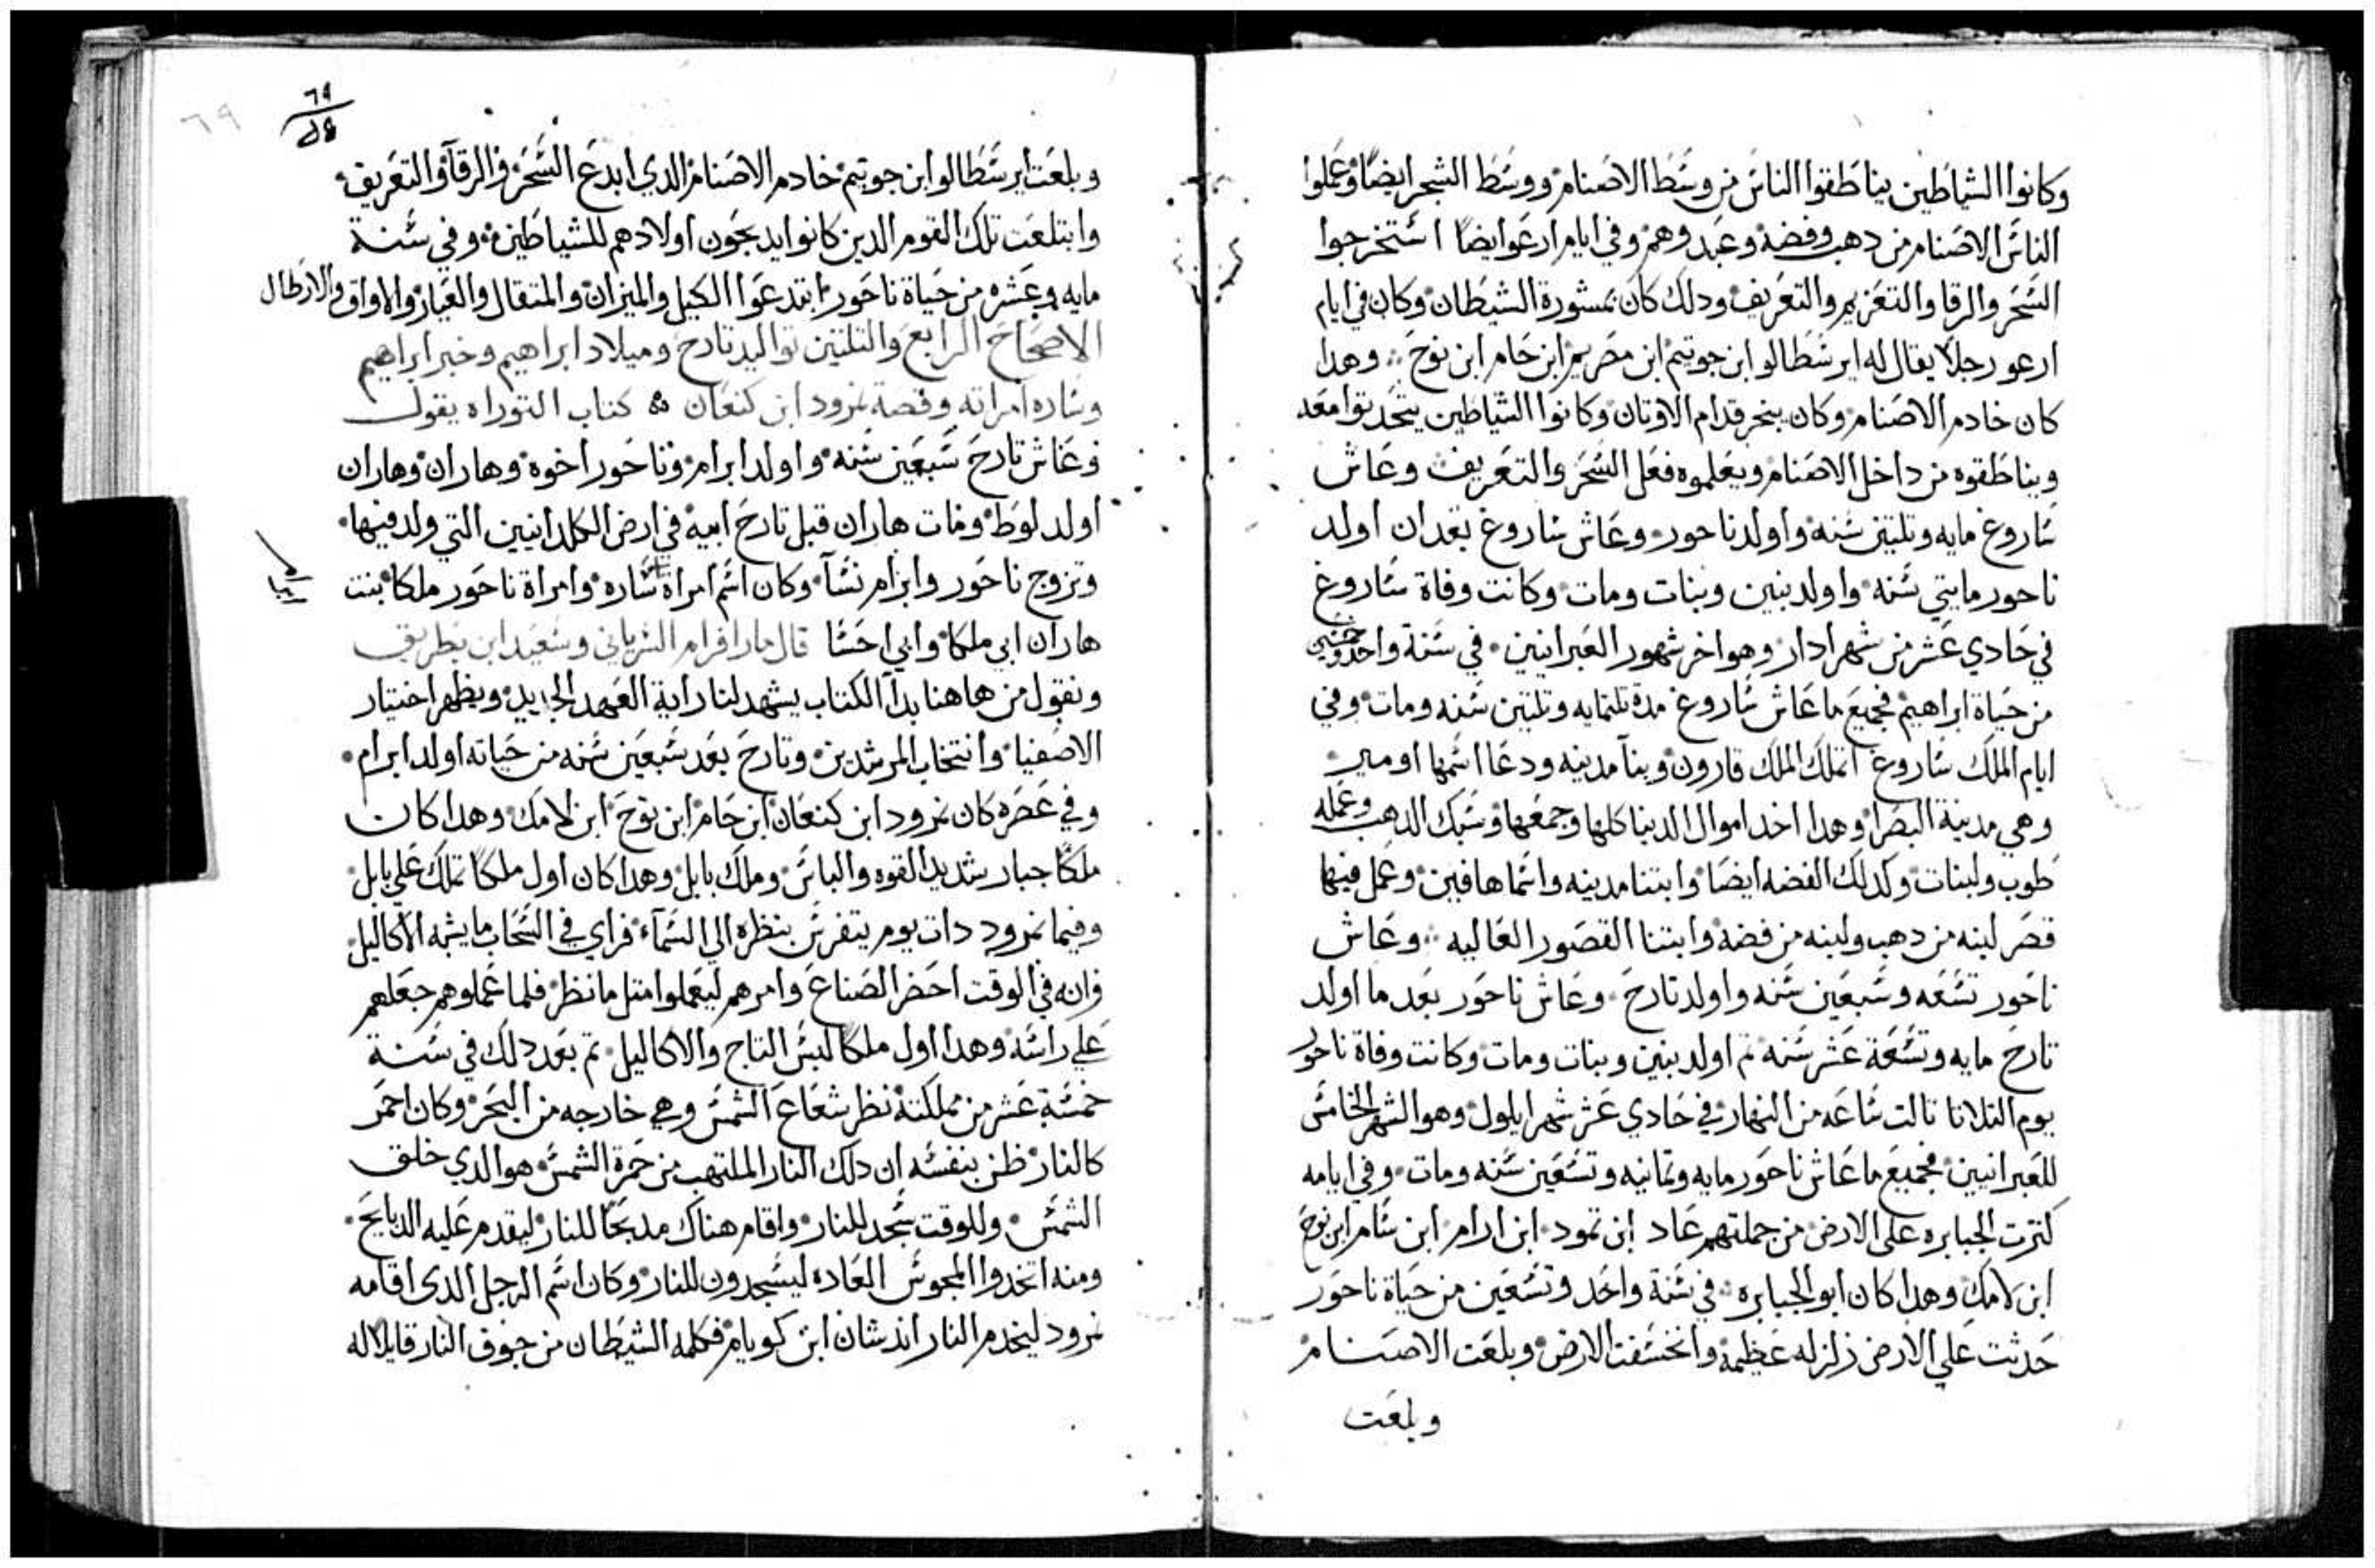 وكانوا الشياطين يناطقوا الناس من وسط الاصنام ووسط الشجر ايضا وعملوا
الناس الاصنام من دهب وفضه وعبدوهم وفي ايام ارعوا ايضا استخرجوا
السحر والرقا والتعزيم والتعريف ودلك كان بمشورة الشيطان وكان في ايام
ارعو رجلا يقال له ايرسطالو ابن جوتيم ابن مصريم ابن حام ابن نوح وهدا
كان خادم الاصنام وكان يبخر قدام الاوتان وكانوا الشياطين يتحدتوا معه
ويناطقوه من داخل الاصنام ويعلموه فعل السحر والتعريف وعاش
ساروغ مايه وتلتين سنه واولد ناحور وعاش ساروغ بعد ان اولد
ناحور مايتي سنه واولد بنين وبنات ومات وكانت وفاة ساروغ
في حادي عشر من شهر ادار وهو اخر شهور العبرانيين في سنة واحد وخمسين
من حياة ابراهيم فجميع ما عاش ساروغ مدة تلتمايه وتلتين سنه ومات وفي
ايام الملك ساروغ اتملك الملك قارون وبنا مدينه ودعا اسمها اومير
وهي مدينة البصرا وهدا اخد اموال الدنيا كلها وجمعها وسبك الدهب وعمله
طوب ولبنات وكدلك الفضه ايضا وابتنا مدينه واسماها فين وعمل فيها
قصر لبنه من دهب ولبنه من فضه وابتنا القصور العاليه وعاش
ناحور تسعه وسبعين سنه واولد تارح وعاش ناحور بعد ما اولد
تارح مايه وتسعة عشر سنه تم اولد بنين وبنات ومات وكانت وفاة ناحور
يوم التلاتا تالت ساعه من النهار في حادي عشر شهر ايلول وهو الشهر الخامس
للعبرانيين فجميع ما عاش ناحور مايه وتمانيه وتسعين سنه ومات وفي ايامه
كترت الجبابره على الارض من جملتهم عاد ابن تمود ابن ارام ابن سام ابن نوح
ابن لامك وهدا كان ابو الجبابره في سنة واحد وتسعين من حياة ناحور
حدثت علي الارض زلزله عظيمه وانخسفت الارض وبلعت الاصنام
وبلعت
٦٩
٦٩
وبلعت ايرسطالو ابن جوتيم خادم الاصنام الدي ابدع السحر والرقا والتعريف
وابتلعت تلك القوم الدين كانوا يدبحون اولادهم للشياطين وفي سنة
مايه وعشره من حياة ناحور ابتدعوا الكيل والميزان والمتقال والعيار والاواق والارطال
الاصحاح الرابع والتلتين تواليد تارح وميلاد ابراهيم وخبر ابراهيم
وساره امراته وقصة نمرود ابن كنعان كتاب التوراه يقول
وعاش تارح سبعين سنه واولد ابرام وناحور اخوه وهاران وهاران
اولد لوط ومات هاران قبل تارح ابيه في ارض الكلدانيين التي ولد فيها
وتزوج ناحور وابرام نسآ وكان اسم امراة ساره وامراة ناحور ملكا بنت
هاران ابي ملكا وابي احسا قال مار افرام السرياني وسعيد ابن بطريق
ونقول من هاهنا بدا الكتاب يشهد لنا راية العهد الجديد ويظهر اختيار
الاصفيا وانتخاب المرشدين وتارح بعد سبعين سنه من حياته اولد ابرام
وفي عصره كان نمرود ابن كنعان ابن حام ابن نوح ابن لامك وهدا كان
ملكا جبار شديد القوه والباس وملك بابل وهدا كان اول ملكا تملك علي بابل
وفيما نمرود دات يوم يتفرس بنظره الي السمآء فراي في السحاب ما يشبه الاكاليل
وانه في الوقت احضر الصناع وامرهم ليعملوا متل ما نظر فلما عملوهم جعلهم
علي راسه وهدا اول ملكا لبس التاج والاكاليل تم بعد دلك في سنة
خمسة عشر من مملكته نظر شعاع الشمس وهي خارجه من البحر وكان احمر
كالنار ظن بنفسه ان دلك النار الملتهب من حمرة الشمس هو الدي خلق
الشمس وللوقت سجد للنار واقام هناك مدبحا للنار ليقدم عليه الدبايح
ومنه اتخدوا المجوس العاده ليسجدون للنار وكان اسم الرجل الدي اقامه
نمرود ليخدم النار اندشان ابن كويام فكلمه الشيطان من جوف النار قايلا له